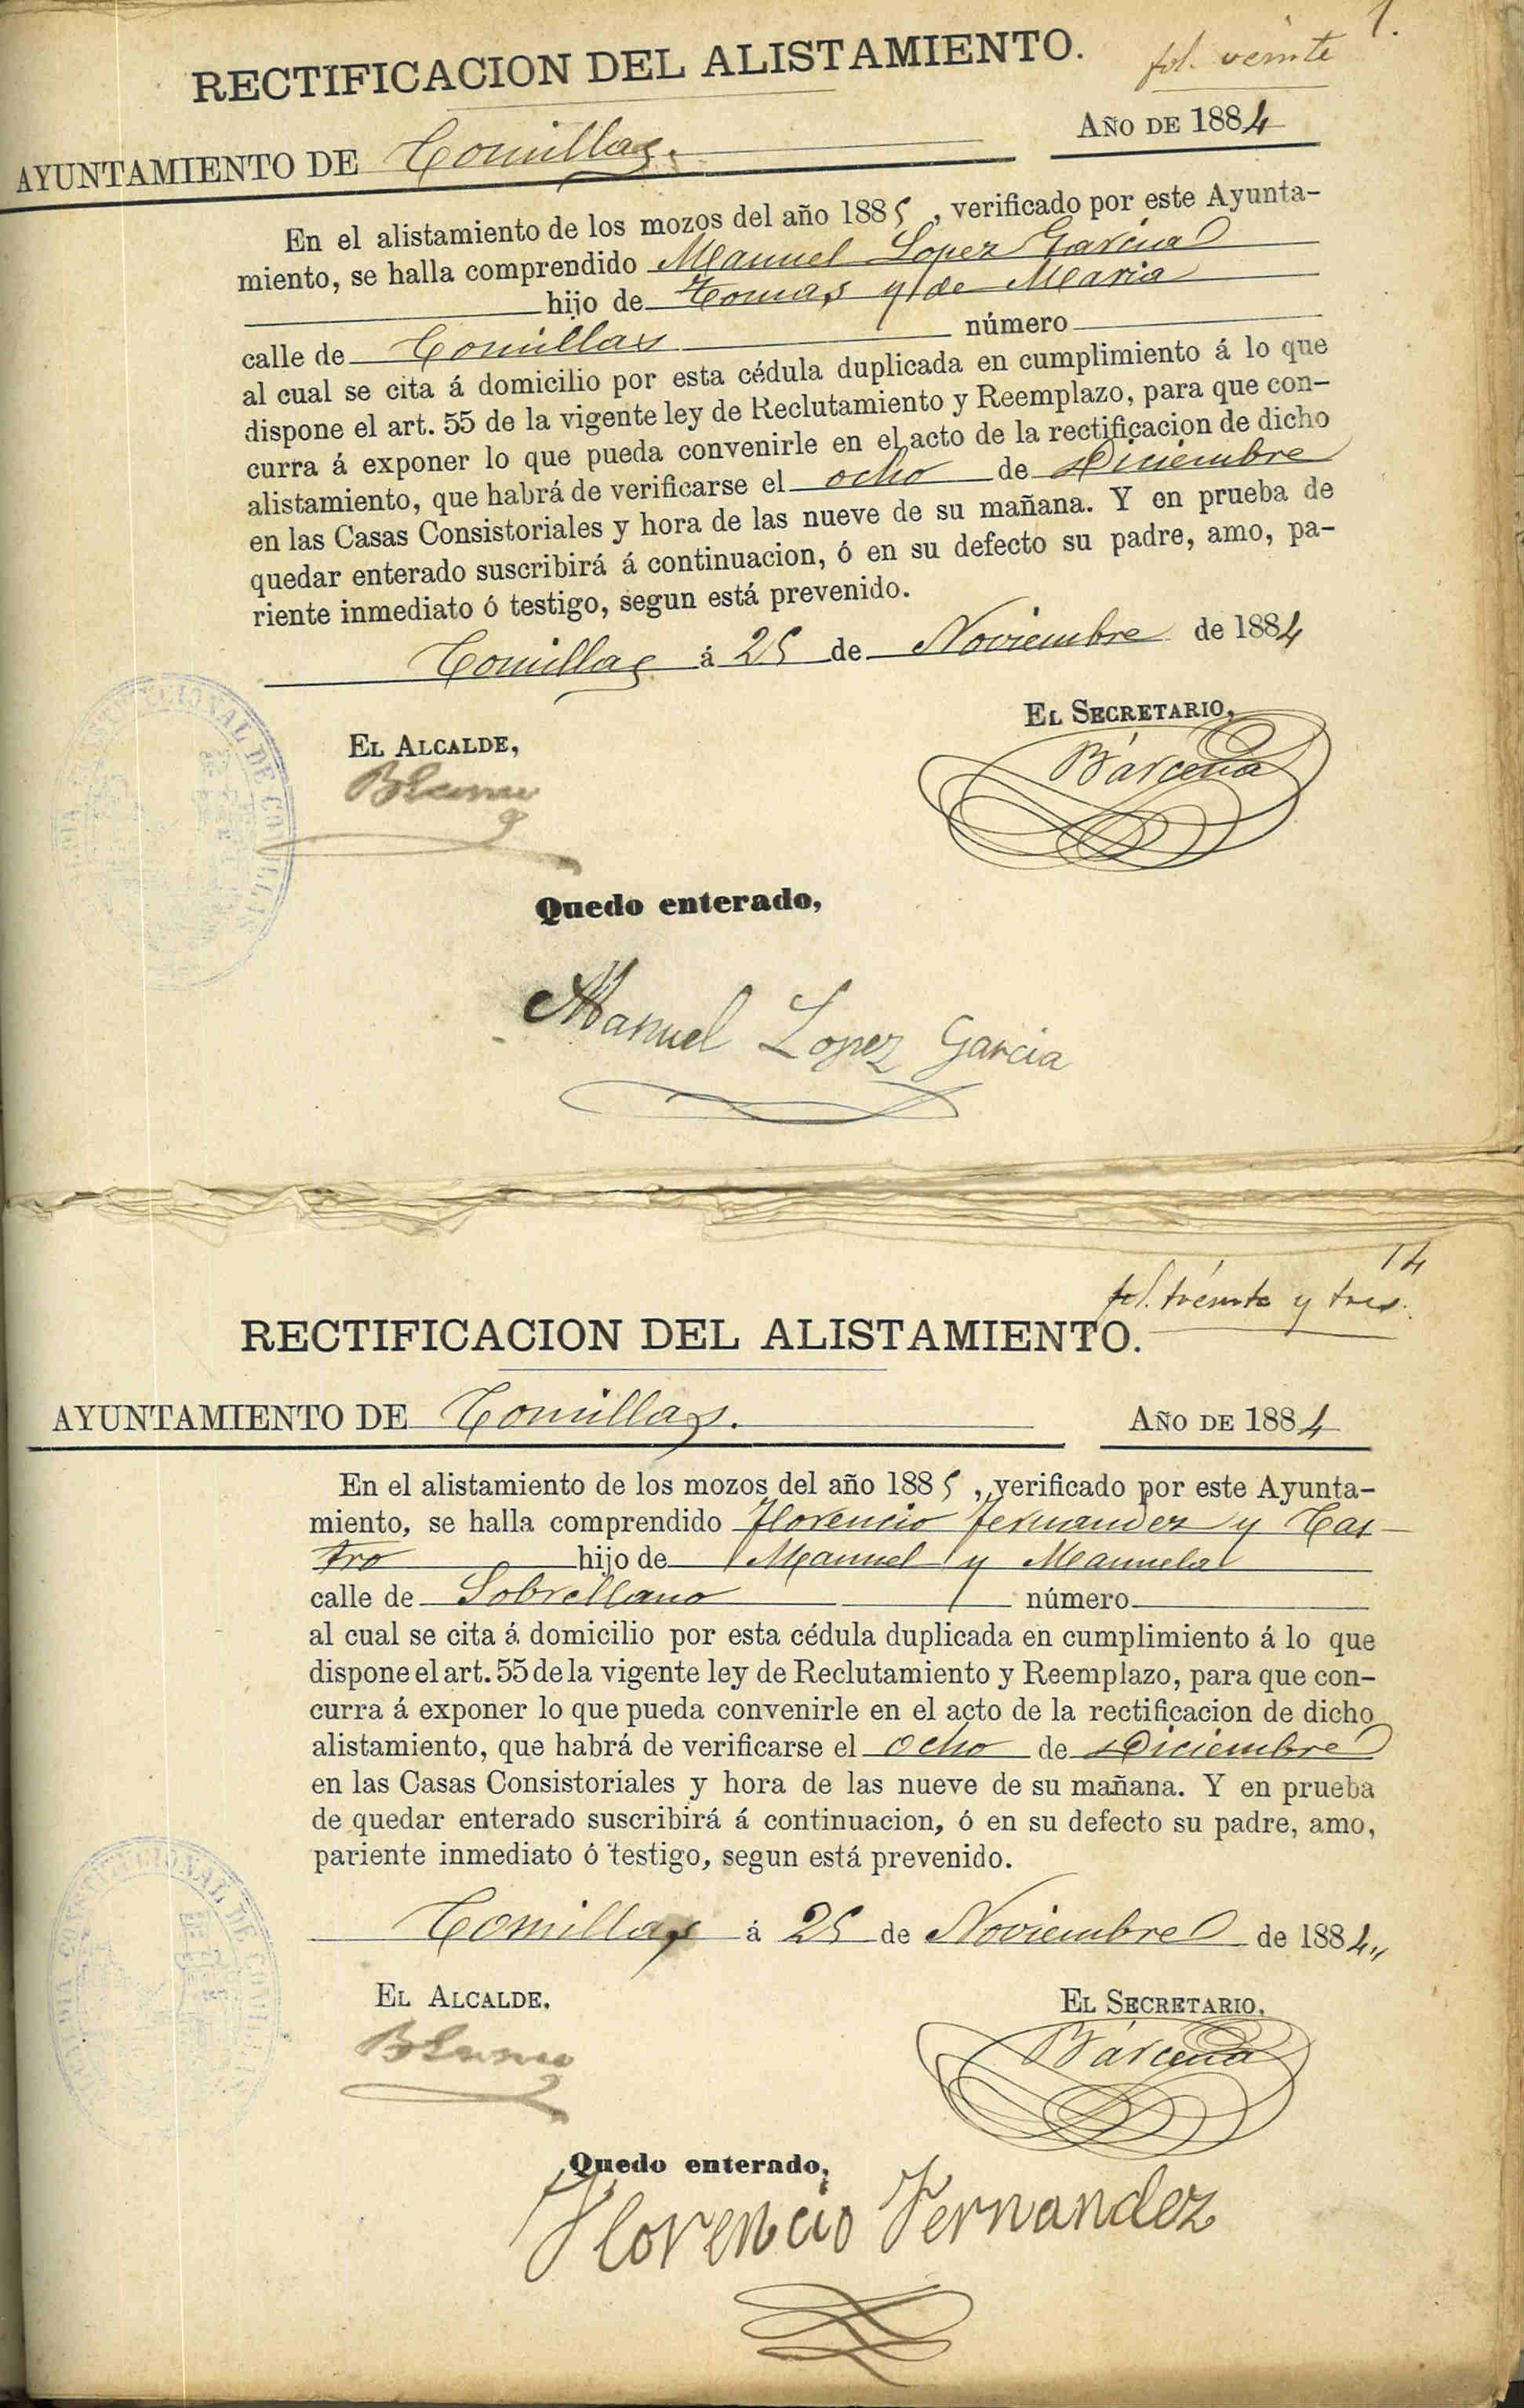 1.
fol. veinte
RECTIFICACION DEL ALISTAMIENTO.
AÑO DE 1884
AYUNTAMIENTO DE Comillas.
En el alistamiento de los mozos del año 1885, verificado por este Ayunta-
miento, se halla comprendido Manuel Lopez Garcia
hijo de Tomas y de Maria
calle de Comillas número
al cual se cita á domicilio por esta cédula duplicada en cumplimiento á lo que
dispone el art. 55 de la vigente ley de Reclutamiento y Reemplazo, para que con-
curra á exponer lo que pueda convenirle en el acto de la rectificacion de dicho
alistamiento, que habrá de verificarse el ocho de Diciembre
en las Casas Consistoriales y hora de las nueve de su mañana. Y en prueba de
quedar enterado suscribirá á continuacion, ó en su defecto su padre, amo, pa-
riente inmediato ó testigo, segun está prevenido.
Comillas á 25 de Noviembre de 1884
EL SECRETARIO,
EL ALCALDE,
Bárcena
Quedo enterado,
Manuel Lopez Garcia
14
fol. treinta y tres.
RECTIFICACION DEL ALISTAMIENTO.
AYUNTAMIENTO DE Comillas. AÑO DE 1884
En el alistamiento de los mozos del año 1885, verificado por este Ayunta-
miento, se halla comprendido Florencio Fernandez y Cas-
tro hijo de Manuel y Manuela
calle de Sobrellano número
al cual se cita á domicilio por esta cédula duplicada en cumplimiento á lo que
dispone el art. 55 de la vigente ley de Reclutamiento y Reemplazo, para que con-
curra á exponer lo que pueda convenirle en el acto de la rectificacion de dicho
alistamiento, que habrá de verificarse el ocho de Diciembre
en las Casas Consistoriales y hora de las nueve de su mañana. Y en prueba
de quedar enterado suscribirá á continuacion, ó en su defecto su padre, amo,
pariente inmediato ó testigo, segun está prevenido.
Comillas á 25 de Noviembre de 1884
EL ALCALDE. EL SECRETARIO,
Bárcena
Quedo enterado,
Florencio Fernandez